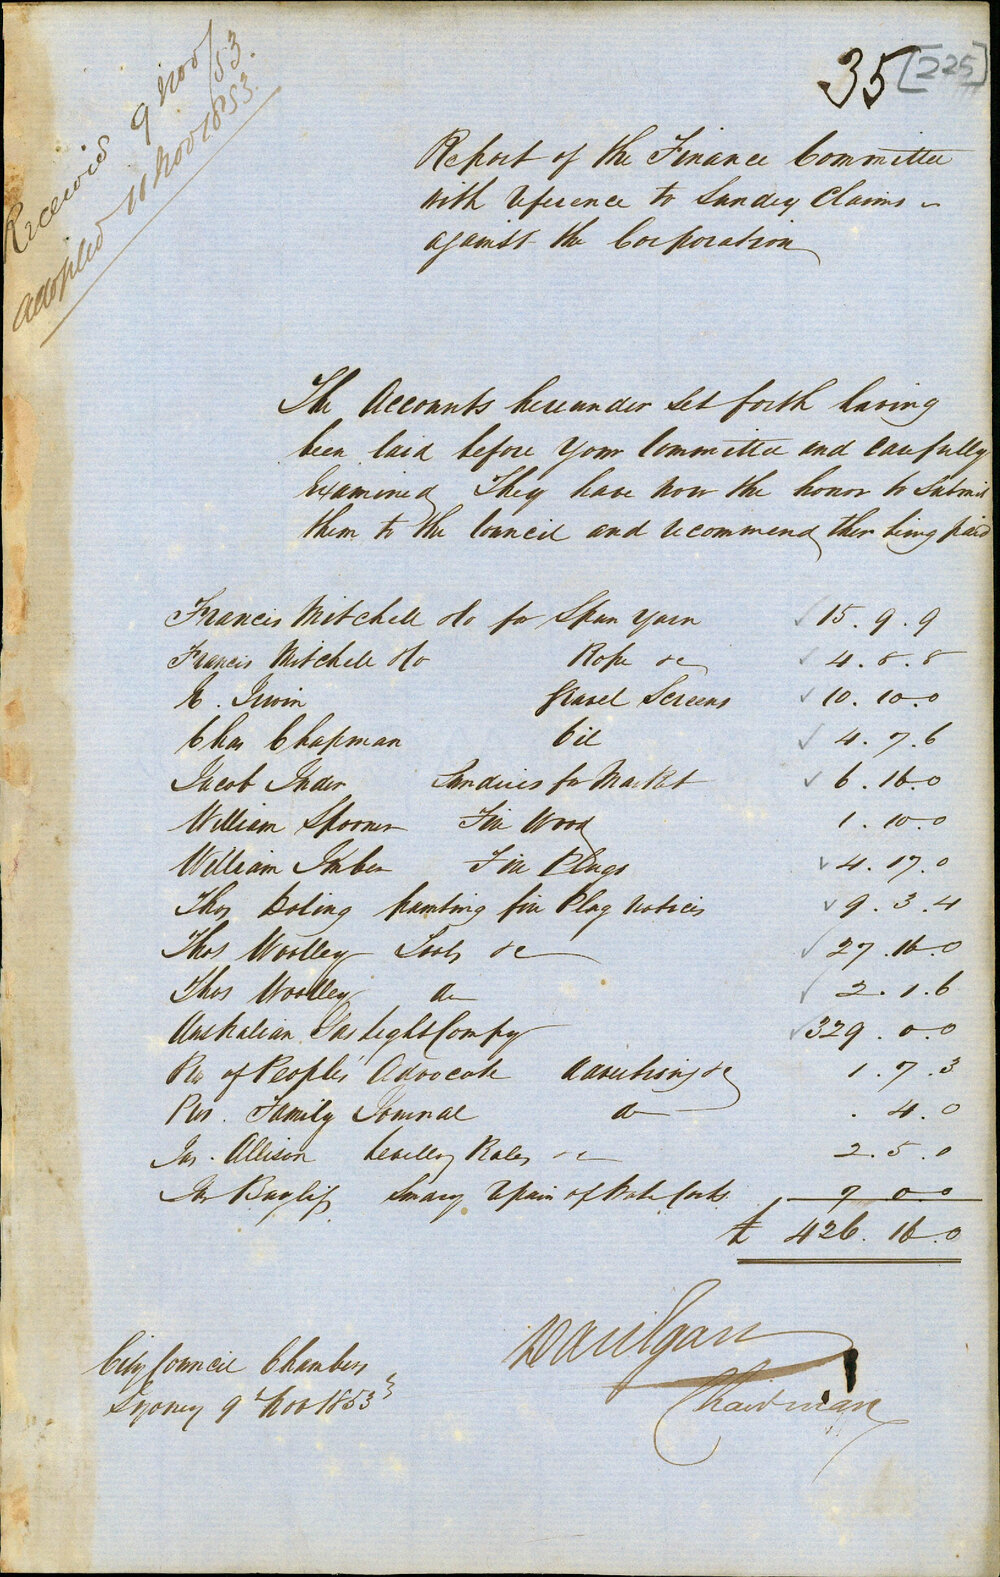 35 [225]
Received 9 Nov/53.
adopted 11 Nov 1853.
Report of the Finance Committee
with reference to Sundry Claims
against the Corporation
The Accounts hereunder set forth having
been laid before your Committee and carefully
Examined They have now the honor to submit
them to the Council and recommend their being paid
Francis Mitchell & Co for Spun Yarn 15. 9. 9
Francis Mitchell & Co Rope &c 4. 8. 8
Irwin Gravel Screens 10. 10. 0
Chas Chapman Oil 4. 7. 6
Jacob Inder Sundries for Market 6. 16. 0
William Spooner Fire Wood 1. 10. 0
William Fire Plugs 4. 17. 0
Thos painting fire Plug Notices 9. 3. 4
Thos Woolley Tools &c 27. 16. 0
Thos Woolley Do 2. 1. 6
Australian Gas Light Compy 329. 0. 0
of Peoples Advocate Advertising &c 1. 7. 3
Family Journal Do . 4. 0
Jas. Allison &c 2. 5. 0
7. 0. 0
£ 426. 16. 0
Dan Egan
Chairman
City Council Chambers
Sydney 9th Nov 1853